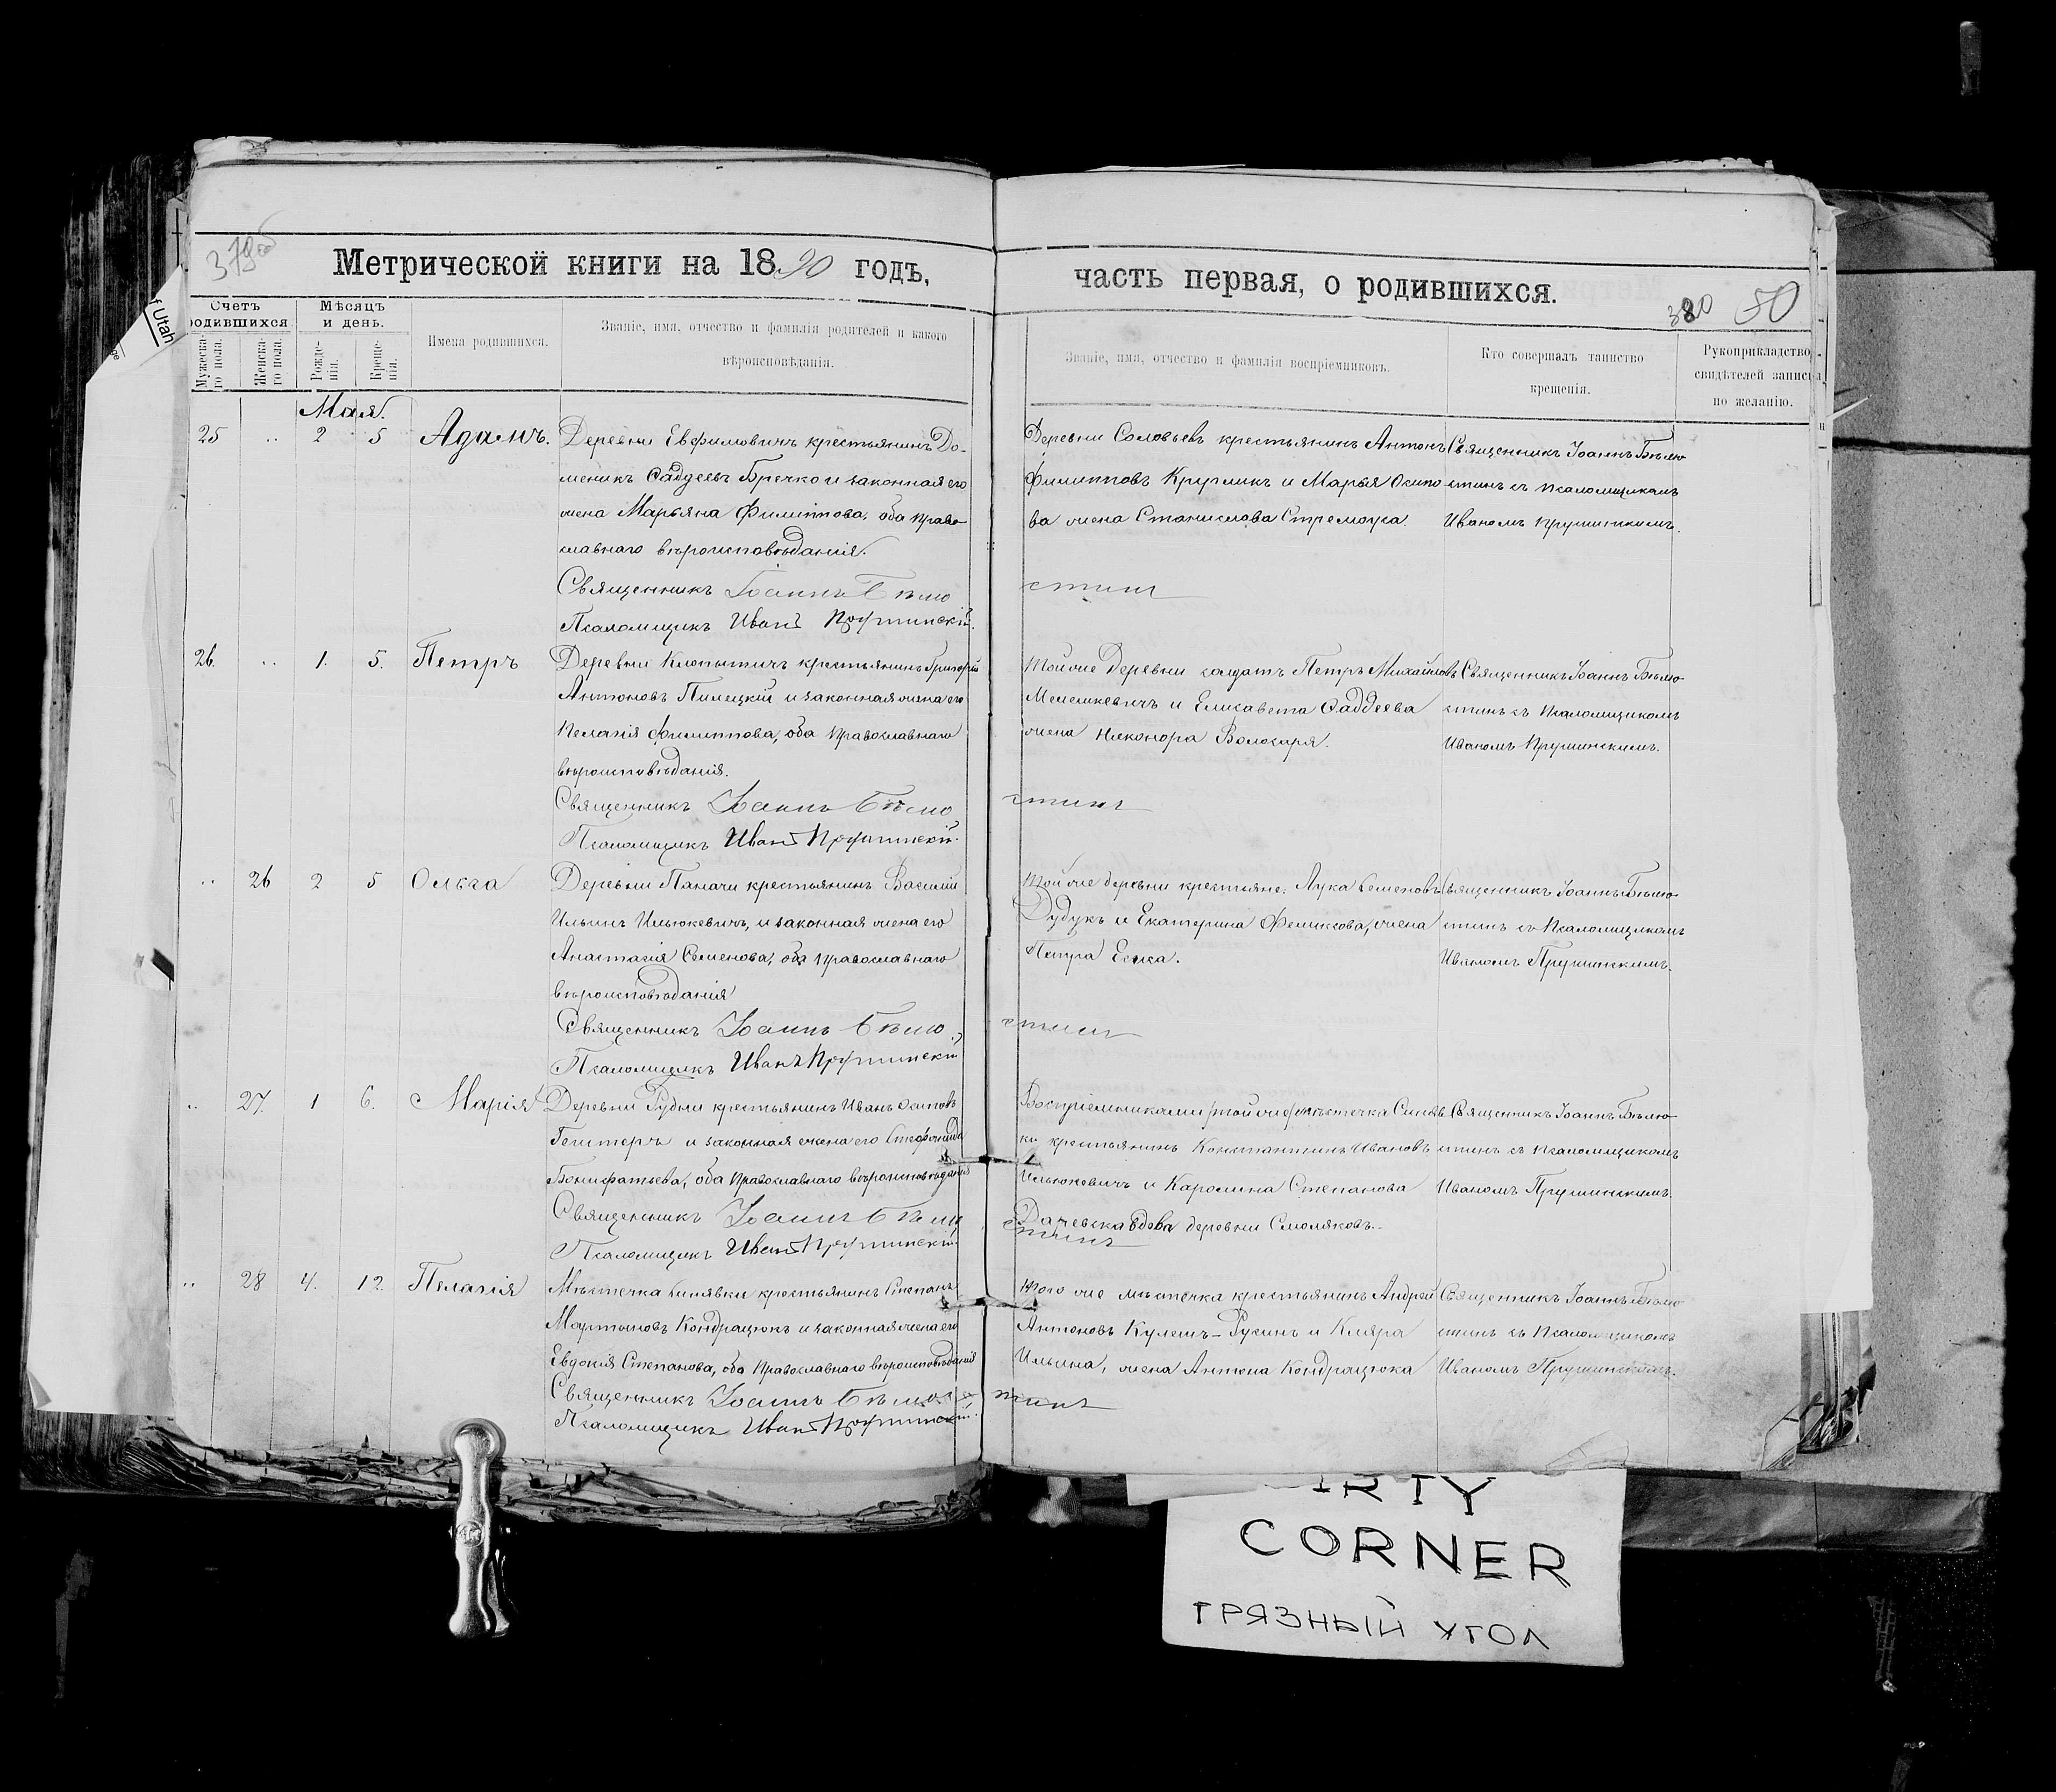 379об
Метрической книги на 1890 годъ,
часть первая, о родившихся.
380 50
Счетъ родившихся
Мужеска-го пола.
Женска-го пола.
Мѣсяцъ и день.
Рожде-нія.
Креще-нія.
Имена родившихся.
Званіе, имя, отчество и фамилія родителей и какого
вѣроисповѣданія.
Званіе, имя, отчество и фамилія воспріемниковъ.
Кто совершалъ таинство
крещенія.
Рукоприкладство
свидѣтелей записи
по желанію.
Мая.
25 .. 2 5 Адамъ.
Деревни Евфимовичъ крестьянинъ До-
меникъ Ѳаддеевъ Бречко и законная его
жена Марьяна Филиппова, оба право
славнаго вѣроисповѣданія.
Священникъ Іоаннъ Бѣлю
Псаломщикъ Иванъ Прушинскій.
Деревни Соловьевъ крестьянинъ Антонъ
Филипповъ Кругликъ и Марья Осипо
ва жена Станислава Стремоуса.
стинъ
Священникъ Іоаннъ Бѣлю
стинъ съ псаломщикомъ
Иваномъ Прушинскимъ.
26. .. 1. 5. Петръ
Деревни Клопытичъ крестьянинъ Григорій
Антоновъ Пилецкій и законная жена его
Пелагія Филиппова, оба православнаго
вѣроисповѣданія.
Священникъ Іоаннъ Бѣлю
Псаломщикъ Иванъ Прушинскій.
Той же деревни солдатъ Петръ Михайловъ
Мелешкевичъ и Елисавета Ѳаддеева
жена Никонора Волосаря.
стинъ
Священникъ Іоаннъ Бѣлю-
стинъ съ псаломщикомъ
Иваномъ Прушинскимъ.
.. 26 2 5 Ольга
Деревни Паначи крестьянинъ Василій
Ильинъ Ильюкевичъ, и законная жена его
Анастасія Семенова, оба православнаго
вѣроисповѣданія
Священникъ Іоаннъ Бѣлю
Псаломщикъ Иванъ Прушинскій
Той же деревни крестьяне: Лука Семеновъ
Дудукъ и Екатерина Феликсова, жена
Петра Еська.
стинъ
Священникъ Іоаннъ Бѣлю-
стинъ съ псаломщикомъ
Иваномъ Прушинскимъ.
.. 27. 1 6. Марія
Деревни Рудни крестьянинъ Иванъ Осиповъ
и законная жена его Стефанида
Бонифатьева, оба православнаго вѣроисповѣданія
Священникъ Іоаннъ Бѣлю
Псаломщикъ Иванъ Прушинскій.
Воспріемниками той же мѣстечка Синяв
ки крестьянинъ Константинъ Ивановъ
Ильюкевичъ и Каролина Степанова
вдова деревни Смоляковъ.
стинъ
Священникъ Іоаннъ Бѣлю-
стинъ съ псаломщикомъ
Иваномъ Прушинскимъ.
.. 28 4. 12. Пелагія
Мѣстечка Синявки крестьянинъ Степанъ
Мартыновъ Кондрацюкъ и законная жена его
Евдокія Степанова, оба православнаго вѣроисповѣданія
Священникъ Іоаннъ Бѣлю
Псаломщикъ Иванъ Прушинскій.
Того же мѣстечка крестьянинъ Андрей
Антоновъ Кулешъ-Русинъ и Кляра
Ильина, жена Антона Кондрацюка
стинъ
Священникъ Іоаннъ Бѣлю
стинъ съ псаломщикомъ
Иваномъ Прушинскимъ.
f Utah
CORNER
ГРЯЗНЫЙ УГОЛ